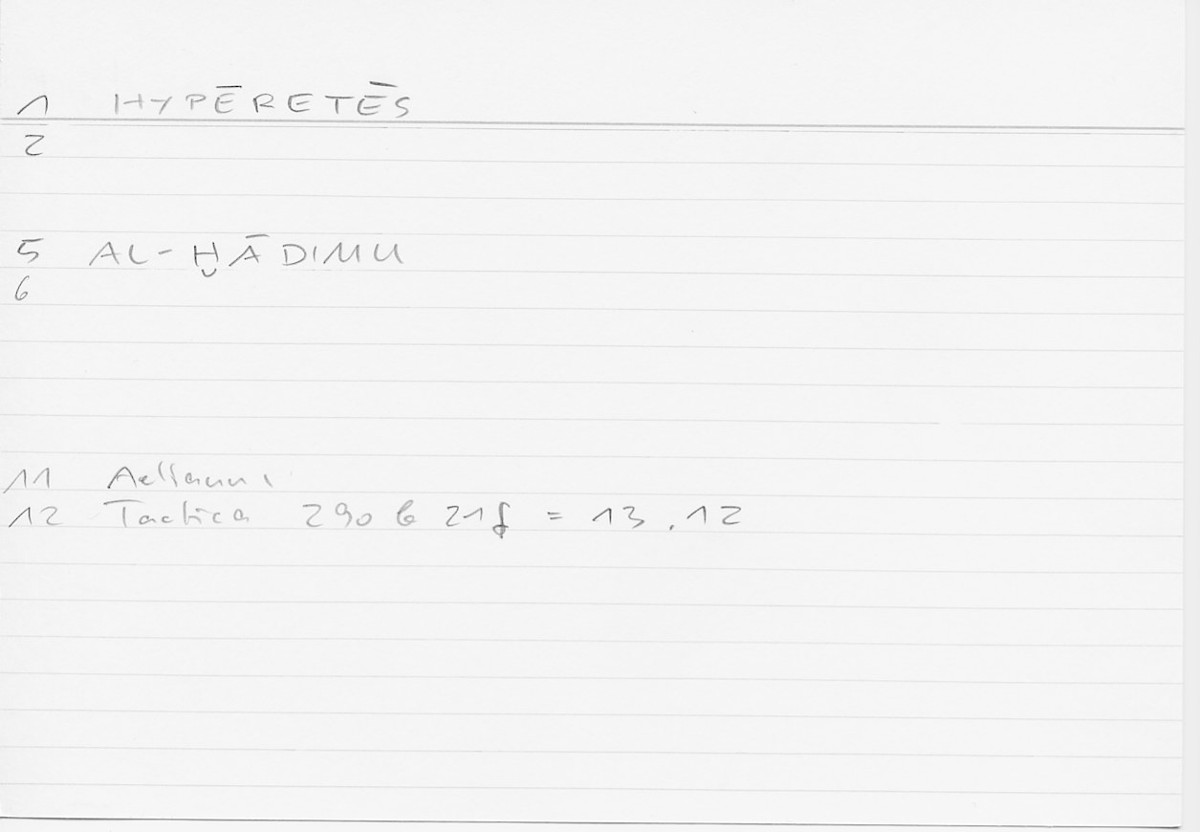 1 HYPĒRETĒS
2
5 AL-ḪĀDIMU
6
11 Aeliani
12 Tactica 290 b 21f = 13.12